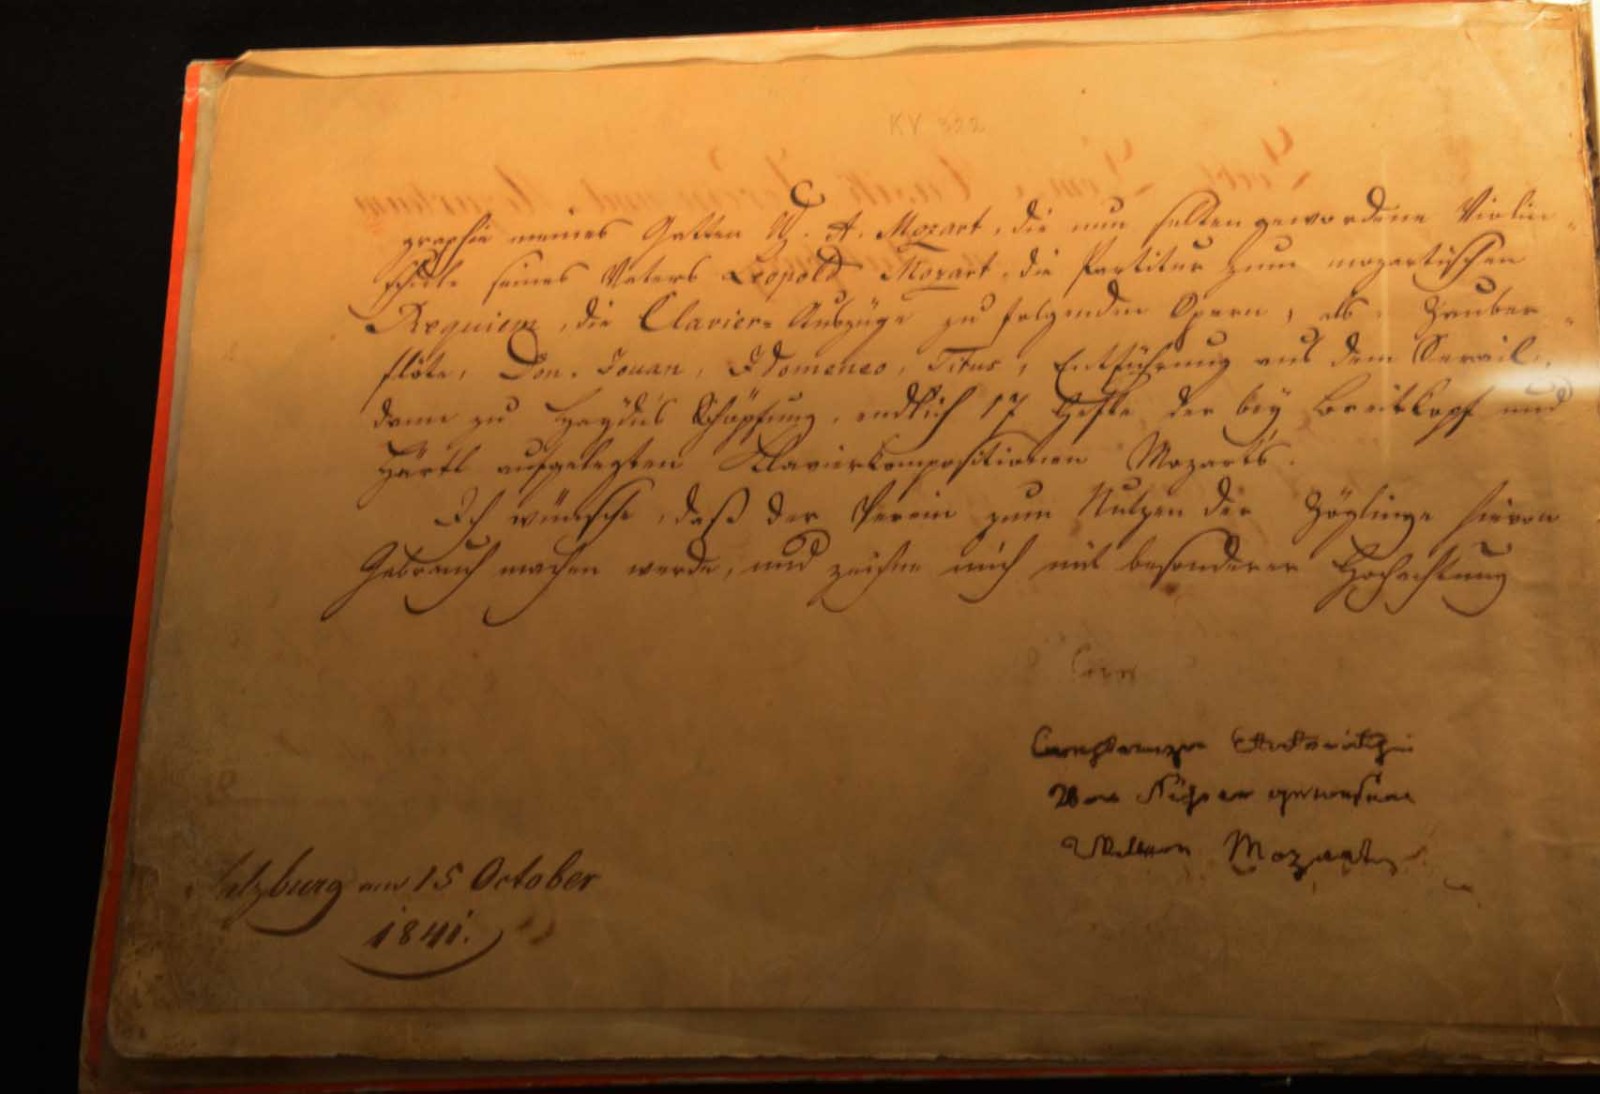 KV 322
graphie meines Gatten W. A. Mozart, die nun selten gewordene Violin-
schule seines Vaters Leopold Mozart, die Partitur zum mozartischen
Requiem, die Clavier-Auszüge zu folgenden Opern, als: Zauber-
flöte, Don Jouan, Idomeneo, Titus, Entführung aus dem Serail,
dann zu Haydns Schöpfung, endlich 17 Hefte der bey Breitkopf und
Härtl aufgelegten Klavierkompositionen Mozarts.
Ich wünsche, daß der Verein zum Nutzen der Zöglinge hievon
Gebrauch machen werde, und zeichne mich mit besonderer Hochachtung
Constanze Etatsräthin
von Nissen gewesene
Wittwe Mozart
Salzburg am 15 October
1841.